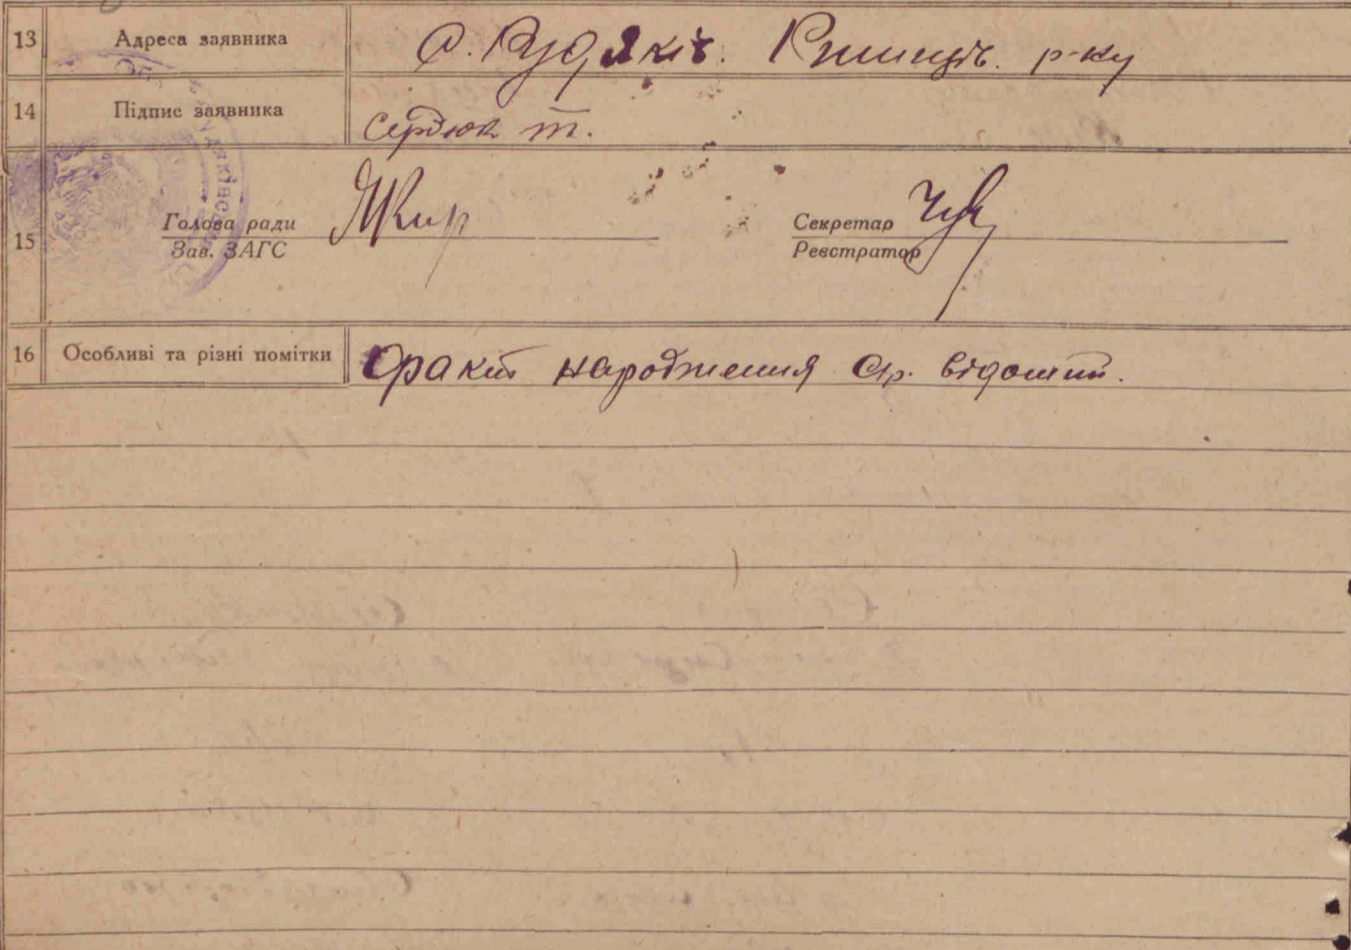 13 Адреса заявника с. Рудяків. Ржищів. р-ку
14 Підпис заявника Сердюк т.
15 Голова ради Секретар
Зав. ЗАГС Реєстратор
16 Особливі та різні помітки Факт народження с/р. відомий.